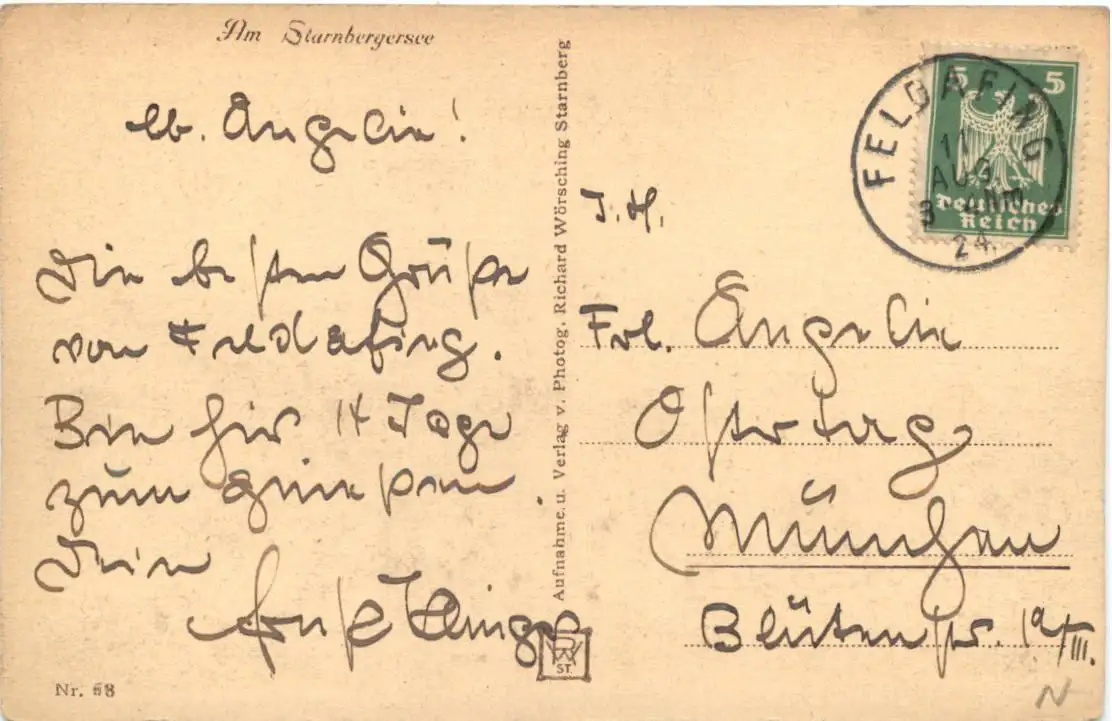 Am Starnbergersee
lb. Angelie!
Die besten Grüße
von Feldafing.
Bin hier 14 Tage
zum genießen.
Dein
Aufnahme u. Verlag v. Photog. Richard Wörsching Starnberg
RW
ST.
Nr. 58
5 5
Deutsches
Reich
FELDAFING
11
AUG
24
Frl. Angelie
Ostertag
München
Blütenstr. 19/III.
N